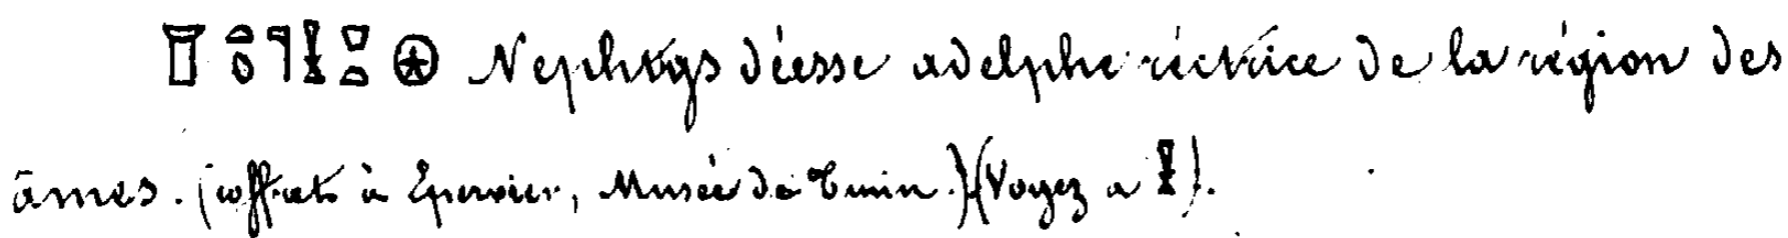 Nephthys déesse adelphe réctrice de la région des
âmes. (coffret à Épervier, Musée de Turin.) (Voyez a ).